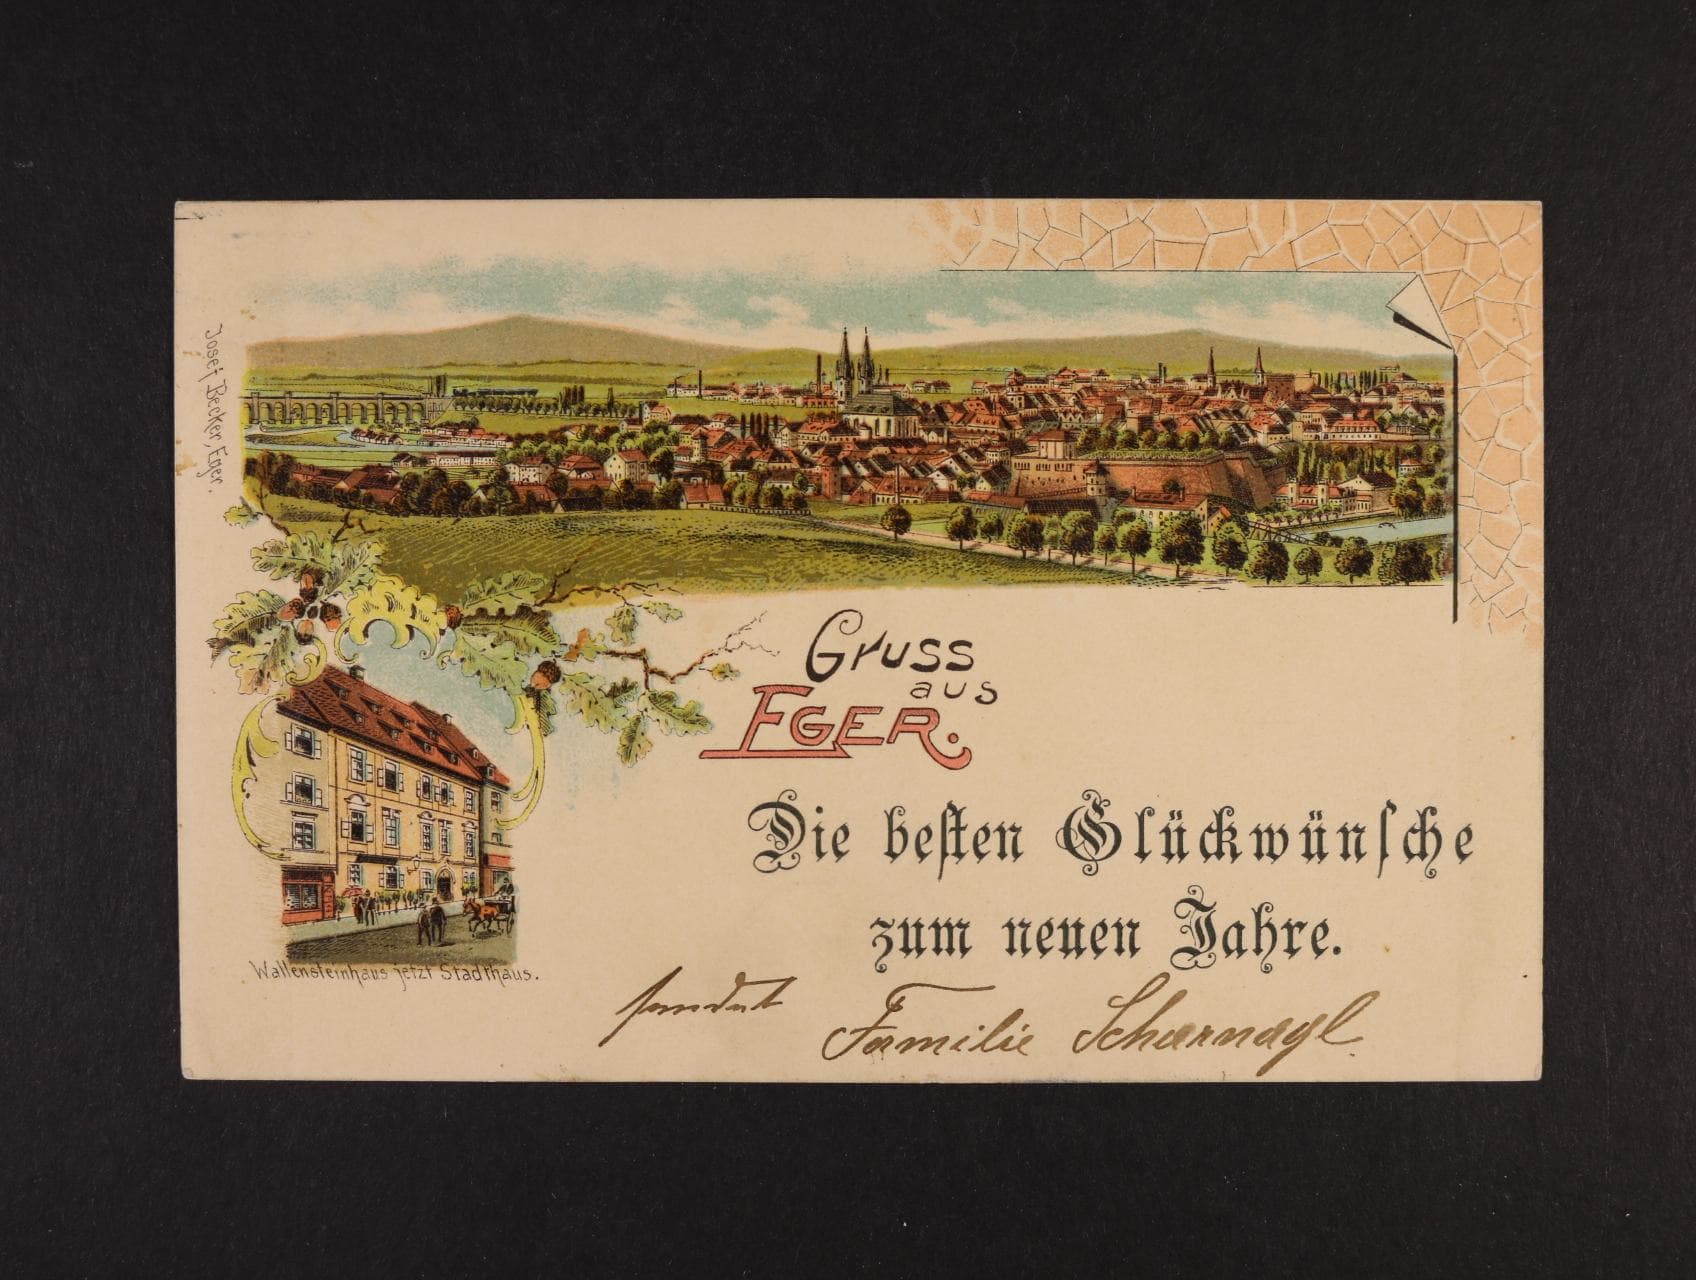 Josef Becker, Eger.
Gruss
aus
EGER.
Die besten Glückwünsche
zum neuen Jahre.
Wallensteinhaus jetzt Stadthaus.
sendet
Familie Scharnagl.